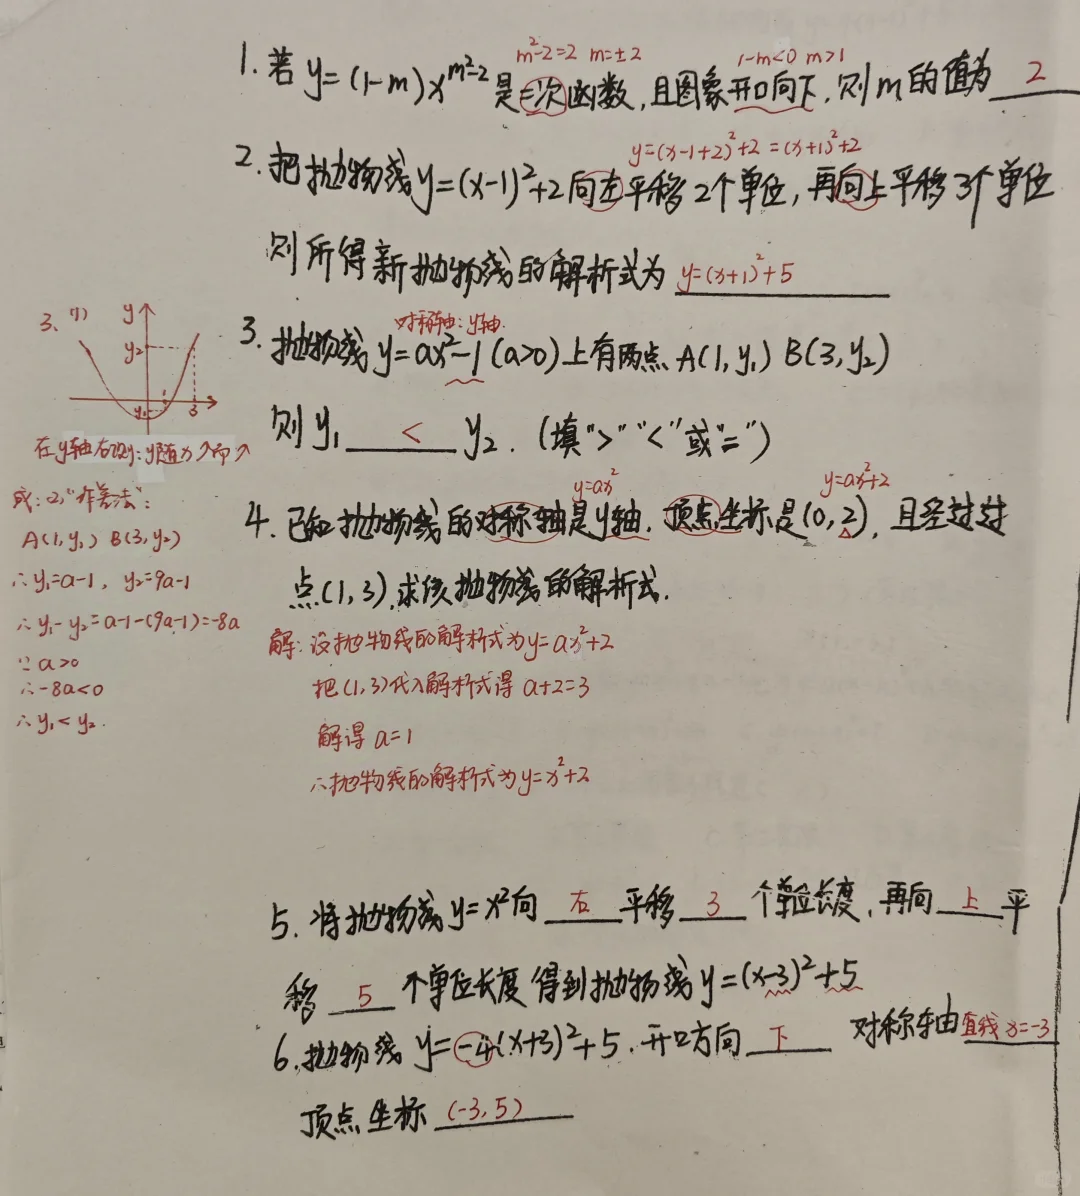 m²-2=2 m=±2 1-m<0 m>1
1. 若 y=(1-m)x^{m²-2} 是二次函数,且图象开口向下,则m的值为 2
y=(x-1+2)²+2=(x+1)²+2
2. 把抛物线y=(x-1)²+2向左平移2个单位,再向上平移3个单位
则所得新抛物线的解析式为 y=(x+1)²+5
对称轴:y轴.
3. 抛物线y=ax²-1(a>0)上有两点A(1,y₁) B(3,y₂)
则y₁ < y₂.(填">""<"或"=")
3、(1) y
y₂
y₁ 1 3
在y轴右边y:y随x↗而↗
或:(2)"作差法":
A(1,y₁) B(3,y₂)
∴y₁=a-1, y₂=9a-1
∴y₁-y₂=a-1-(9a-1)=-8a
∵a>0
∴-8a<0
∴y₁<y₂.
y=ax² y=ax²+2
4. 已知抛物线的对称轴是y轴.顶点坐标是(0,2),且经过过
点(1,3),求该抛物线的解析式.
解:设抛物线的解析式为y=ax²+2
把(1,3)代入解析式得 a+2=3
解得a=1
∴抛物线的解析式为y=x²+2
5. 将抛物线y=x²向 右 平移 3 个单位长度,再向 上 平
移 5 个单位长度得到抛物线y=(x-3)²+5
6. 抛物线 y=-4(x+3)²+5.开口方向 下 对称轴直线x=-3
顶点坐标 (-3,5)